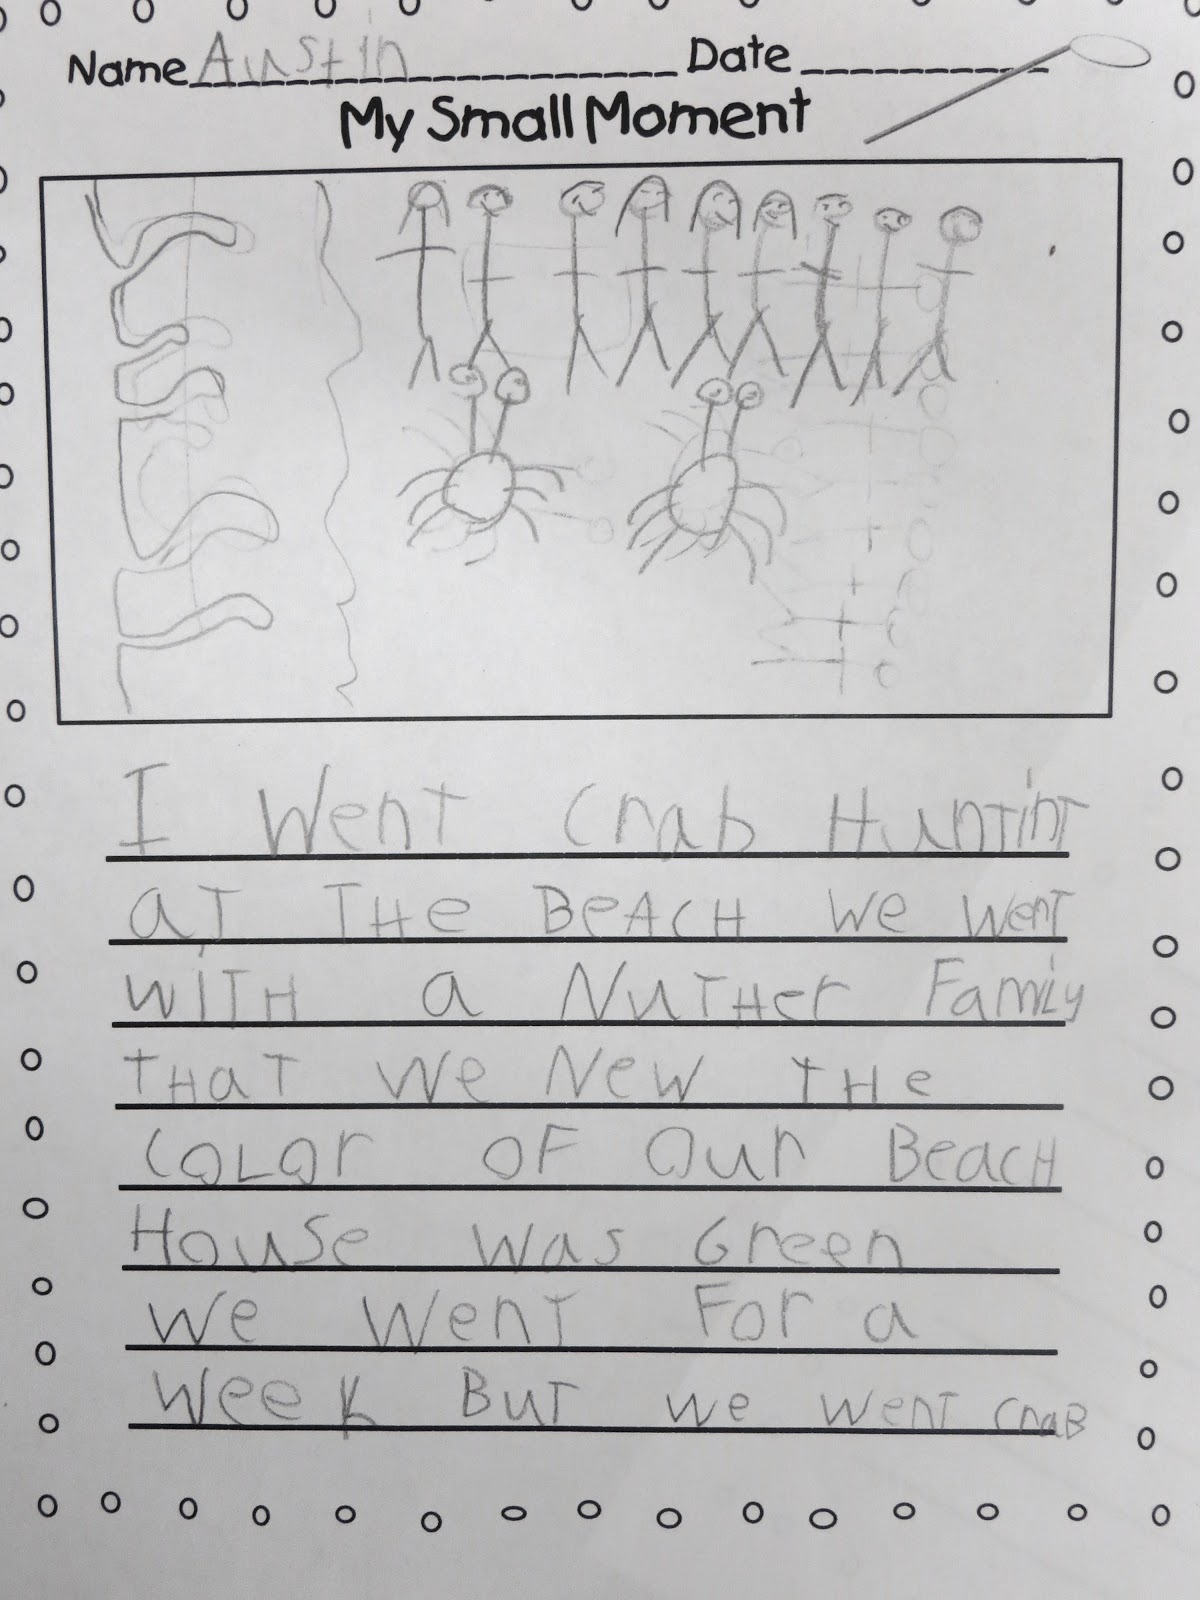 Name Austin Date
My Small Moment
I Went Crab Huntint
aT THe BeACH we wenT
wiTH a NuTHer Family
THaT We New THe
CoLor oF our BeacH
House was Green
we WenT For a
week BuT we wenT craB